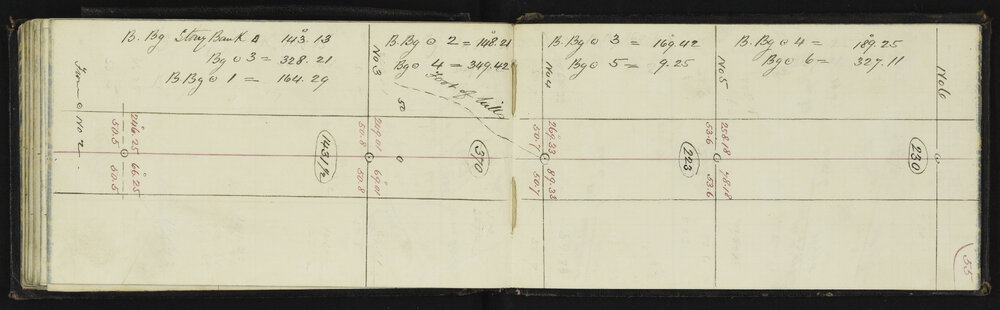 B. Bg Stony Bank △ 143.13
Bg ⊙ 3 = 328.21
B. Bg ⊙ 1 = 164.29
B. Bg ⊙ 2 = 148.21
Bg ⊙ 4 = 349.42
B. Bg ⊙ 3 = 169.42
Bg ⊙ 5 = 9.25
B. Bg ⊙ 4 = 189.25
Bg ⊙ 6 = 327.11
From ⊙ No 2
246.25 66.25
50.5 50.5
143 1/2
No 3
50
0
249.01 69.01
50.8 50.8
Foot of hill
370
No 4
269.33 89.33
50.7 50.7
223
No 5
258.18 78.18
53.6 53.6
230
No 6
55